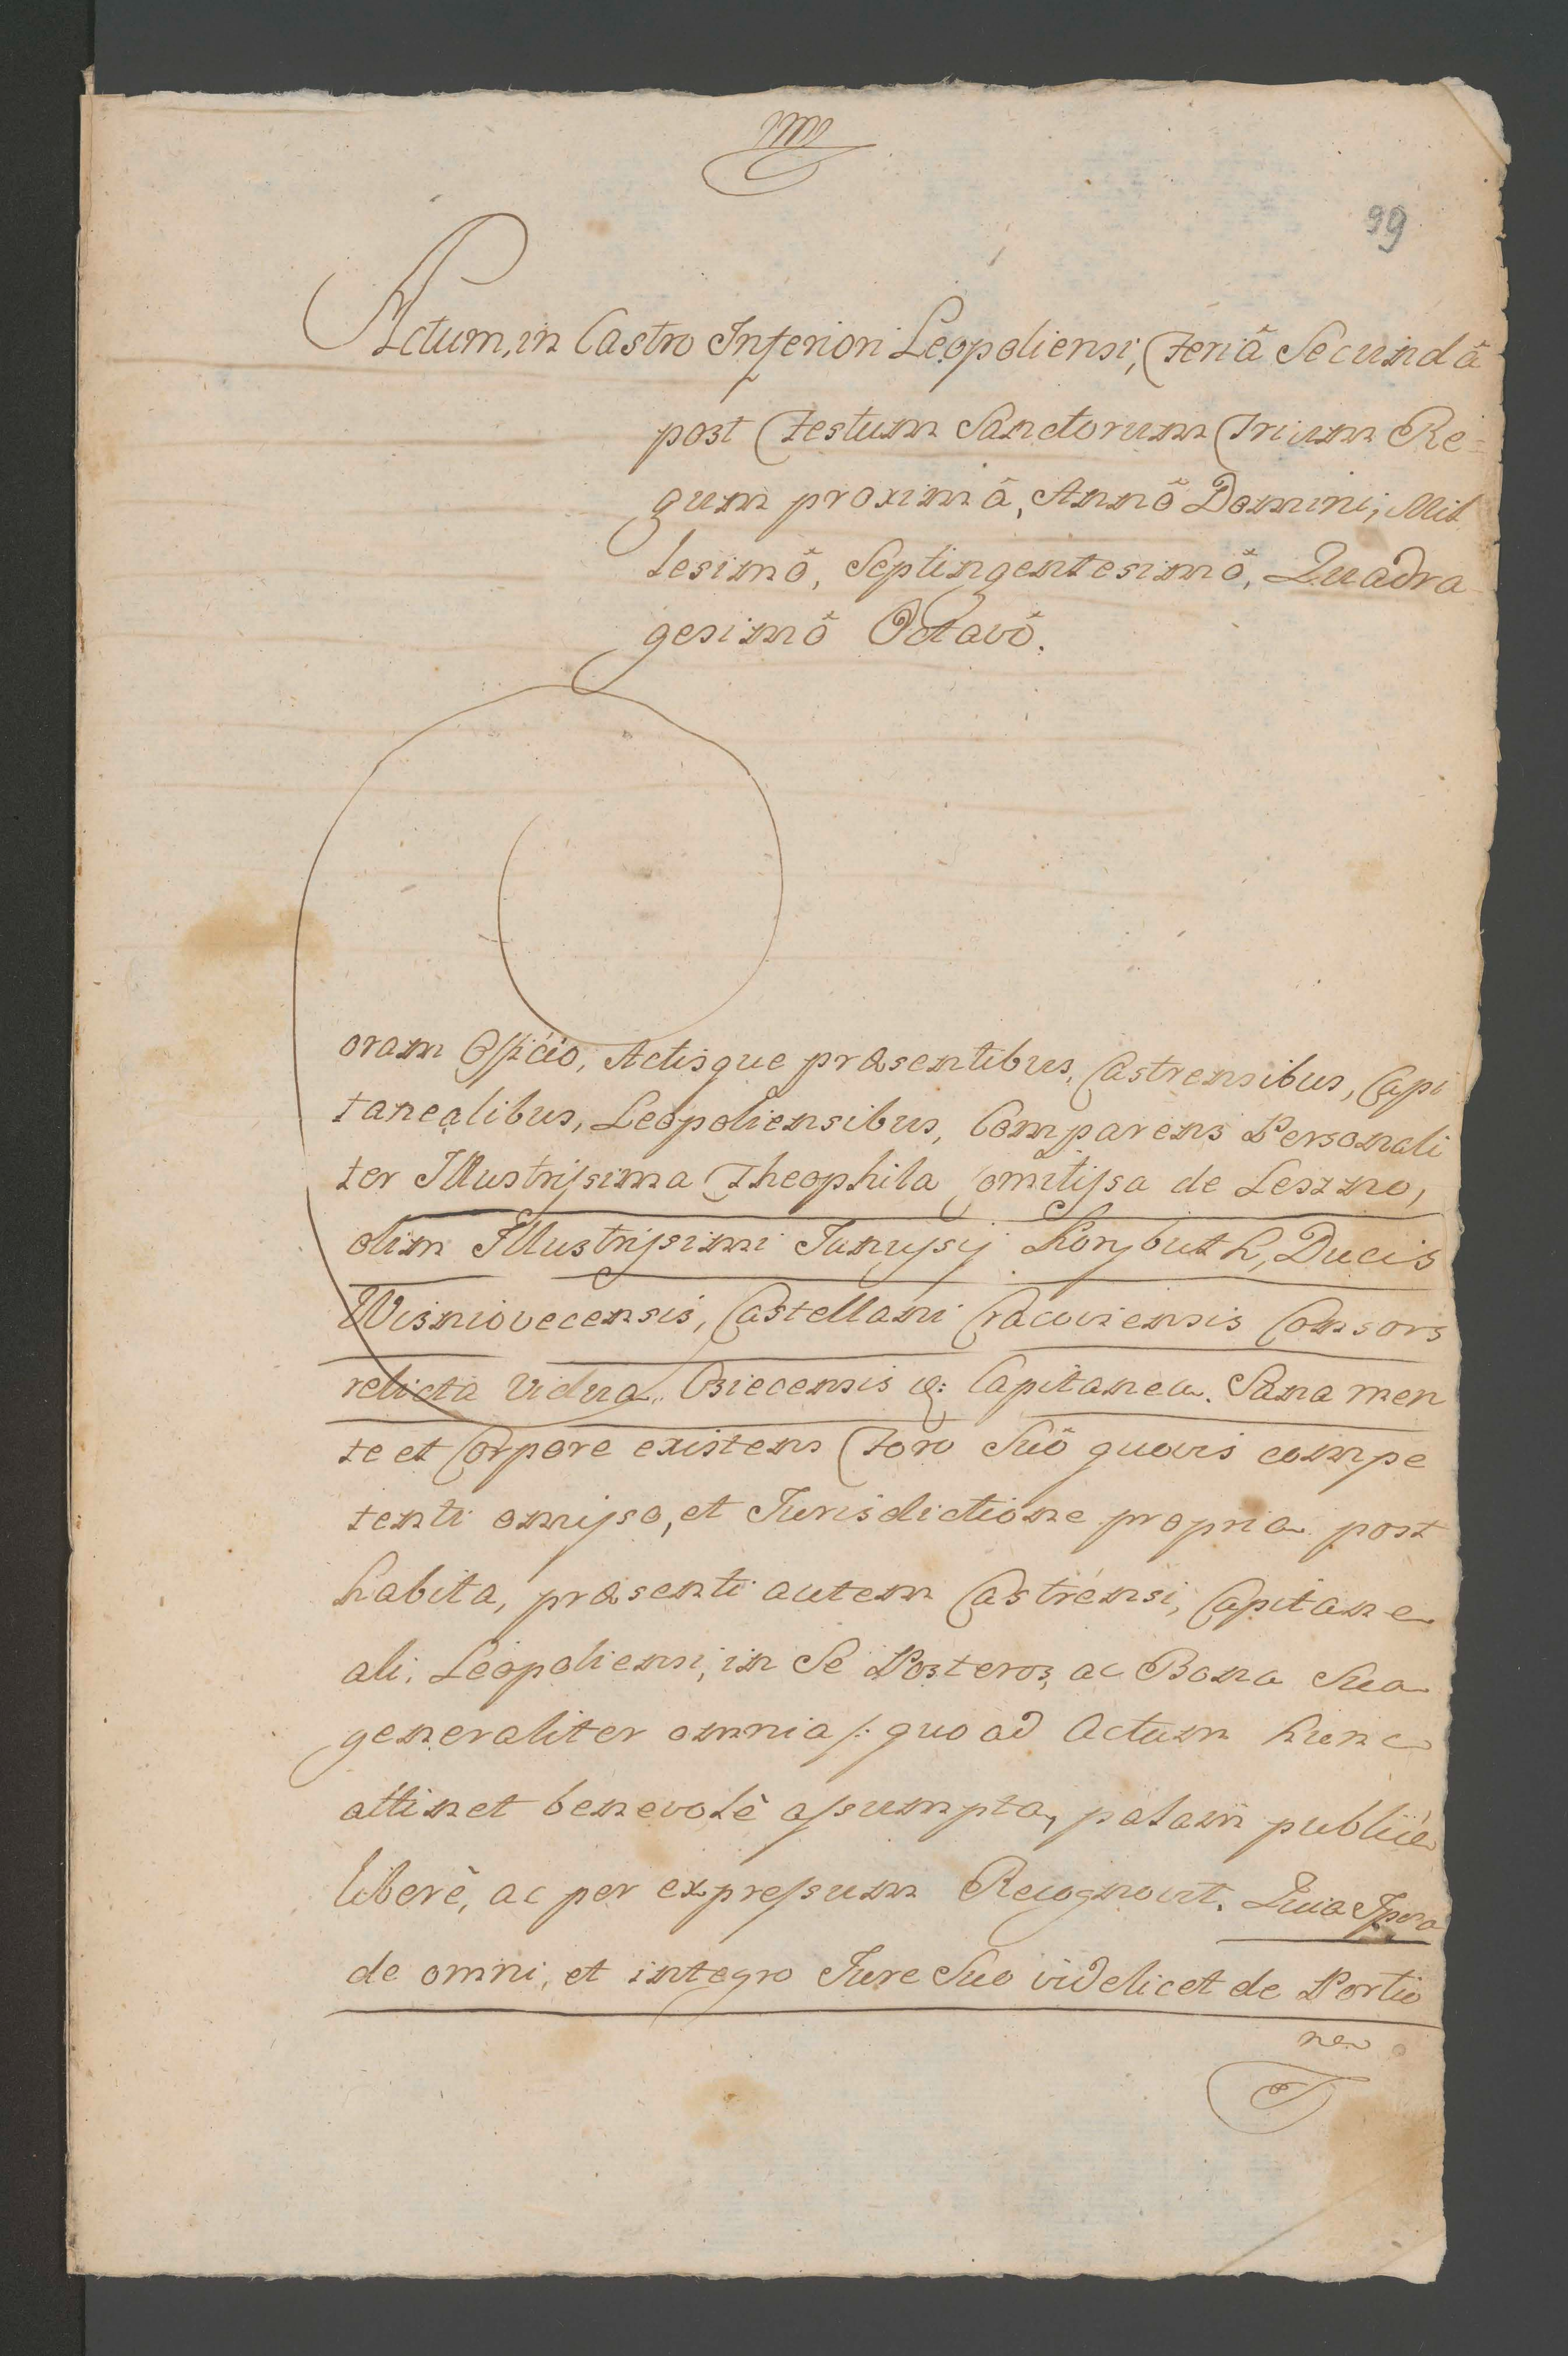 99
Actum, in Castro Inferiori Leopoliensi, Feriâ Secundâ
post Festum Sanctorum Trium Re=
gum proximâ, Annô Domini, Mil
lesimô, Septingentesimô, Quadra
gesimô Octavô.
Coram Officio, Actisque præsentibus, Castrensibus, Capi
tanealibus, Leopoliensibus, Comparens Personali
ter Illustrissima Theophila Comitissa de Leszno,
olim Illustrissimi Janussij Korybuth, Ducis
Wisniovecensis, Castellani Cracoviensis Consors
relicta Vidua, Biecensis q: Capitanea. Sana men
te et Corpore existens Foro Suô quovis compe
tenti omisso, et Jurisdictione propria post
habita, præsenti autem Castrensi, Capitane
ali, Leopoliensi, in Se Posteros, ac Bona Sua
generaliter omnia /: quo ad Actum hunc
attinet benevolè assumpta, palam publicè
liberè, ac per expressum Recognovit. Quia Ipsa
de omni, et integro Jure Suo videlicet de Portio
ne